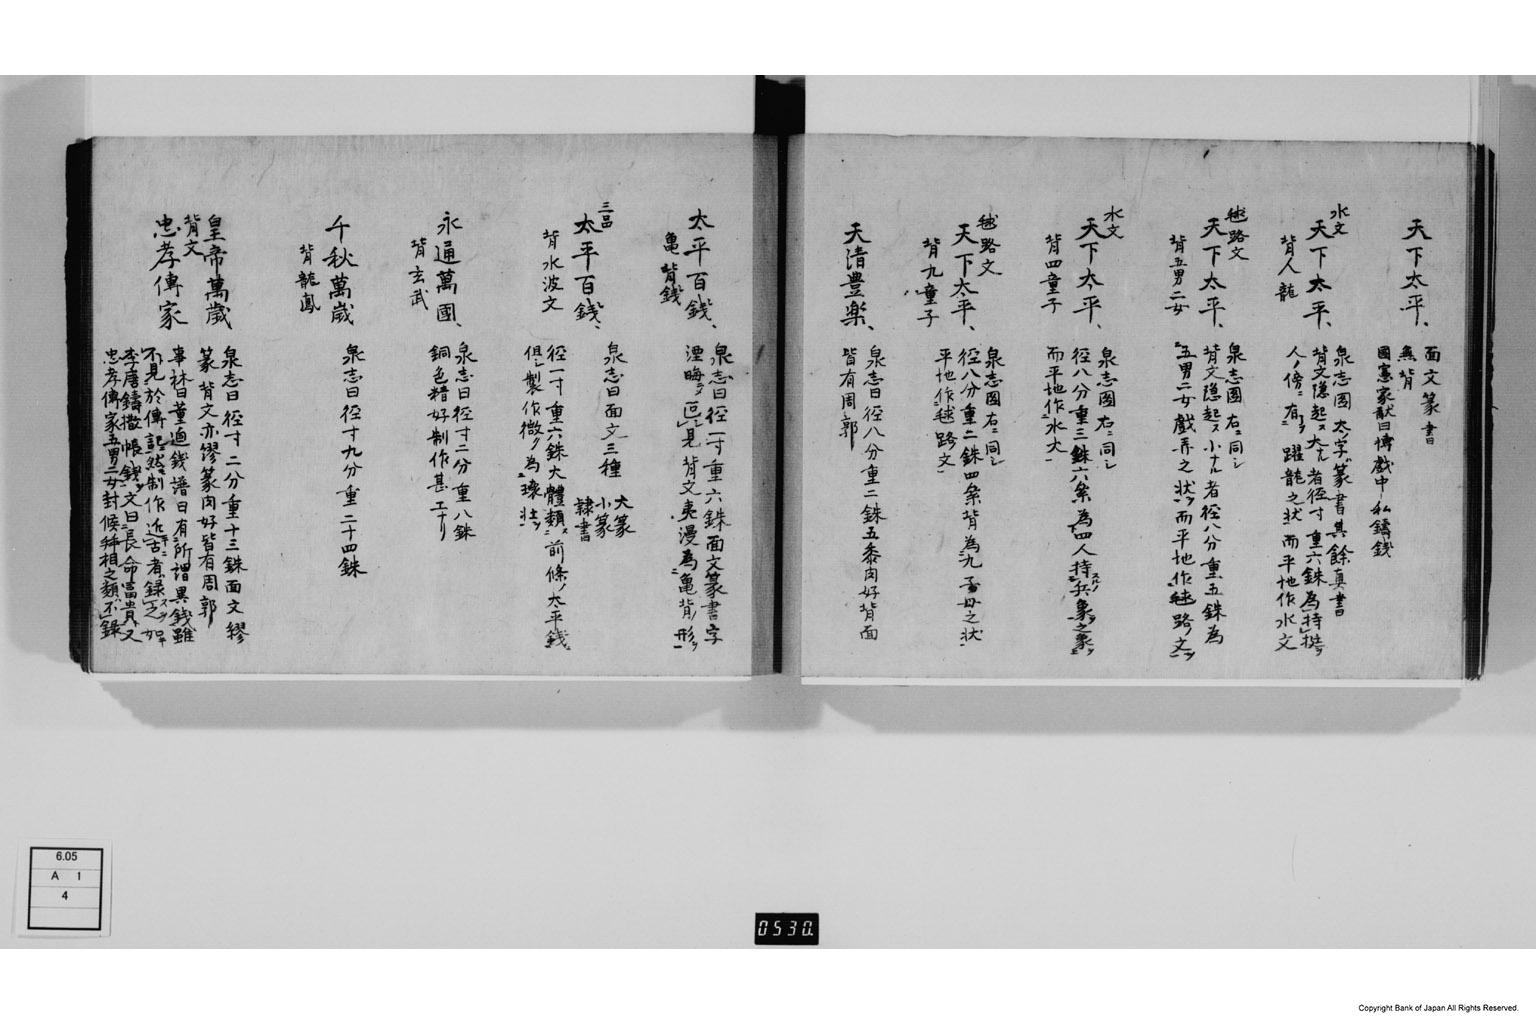 天下太平、
面文篆書
無背
國憲家猷曰博戯中私鑄錢
水文
天下太平、
背人龍
泉志圖太字篆書其餘真書
背文隠起ス大ナル者径寸重六銖為持
人ノ傍ニ有リ躍龍之状而平地作水文
毬路文
天下太平、
背五男二女
泉志圖右ニ同シ
背文隠起ス小ナル者径八分重五銖為
五男二女戯弄之状ヲ而平地作毬路ノ文ヲ
水文
天下太平、
背四童子
泉志圖右ニ同シ
径八分重三銖六絫為四人持兵象之象ヲ
而平地作水大
毬路文
天下太平、
背九童子
泉志圖右ニ同シ
径八分重二銖四絫背為九子母之状
平地作毬路文
天清豊楽、
泉志曰径八分重二銖五黍肉好背面
皆有周郭
太平百錢、
亀背錢
泉志曰径一寸重六銖面文篆書字
湮晦ニ見背文夷漫為亀背形ヲ
三品
太平百錢、
背水波文
泉志曰面文三種
大篆
小篆
隷書
径一寸重六銖大體類ス前條ノ太平錢ニ
但シ製作微ク為壊壮ヲ
永通萬國、
背玄武
泉志曰径寸二分重八銖
銅色精好制作甚工ナリ
千秋萬歳
背龍鳳
泉志曰径寸九分重二十四銖
皇帝萬歳
背文
忠孝傳家
泉志曰径寸二分重十三銖面文繆
篆背文亦繆篆肉好皆有周郭
事林曰董逌錢譜曰有所謂異錢雖
不見於傳記然制作近古者録之如
李唐鑄撒帳錢文曰長命富貴又
忠孝傳家五男二女封侯拜相之類不録
6.05
A 1
4
0530.
Copyright Bank of Japan All Rights Reserved.